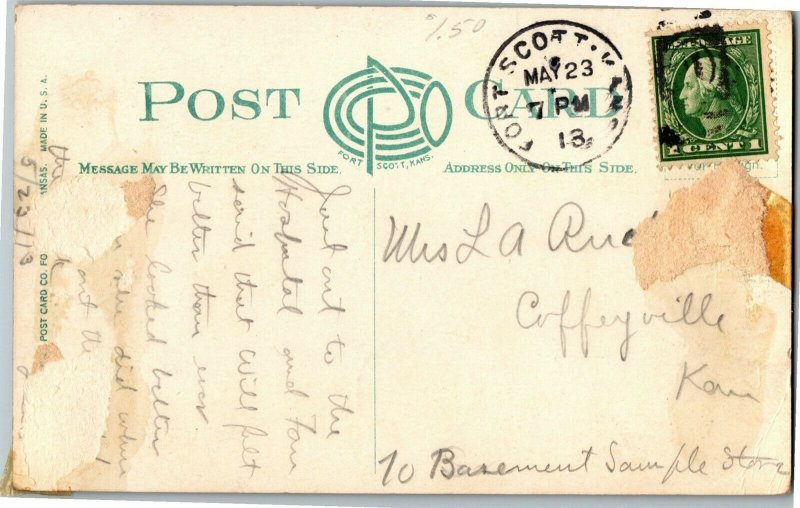 $1.50
POST CARD
FORT SCOTT, KANS.
MAY 23
7 PM
13
POSTAGE
1 CENT 1
FORT SCOTT, KANS.
MESSAGE MAY BE WRITTEN ON THIS SIDE.
ADDRESS ONLY ON THIS SIDE.
POST CARD CO. FO
ANSAS. MADE IN U.S.A.
5/23/13
Just out to the
Hospital and Fan
said that Will felt
better than ever
She looked better
she did when
out the
Mrs L A Rud
Coffeyville
Kan
10 Basement Sample Store